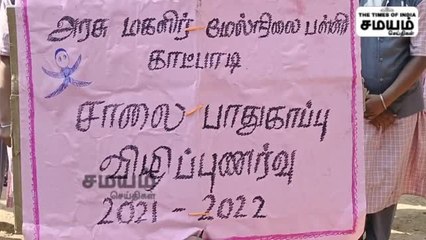 அரசு மகளிர் மேல்நிலை பள்ளி
காட்பாடி
சாலை பாதுகாப்பு
விழிப்புணர்வு
2021 - 2022
THE TIMES OF INDIA
சமயம்
செய்திகள்
சமயம்
செய்திகள்